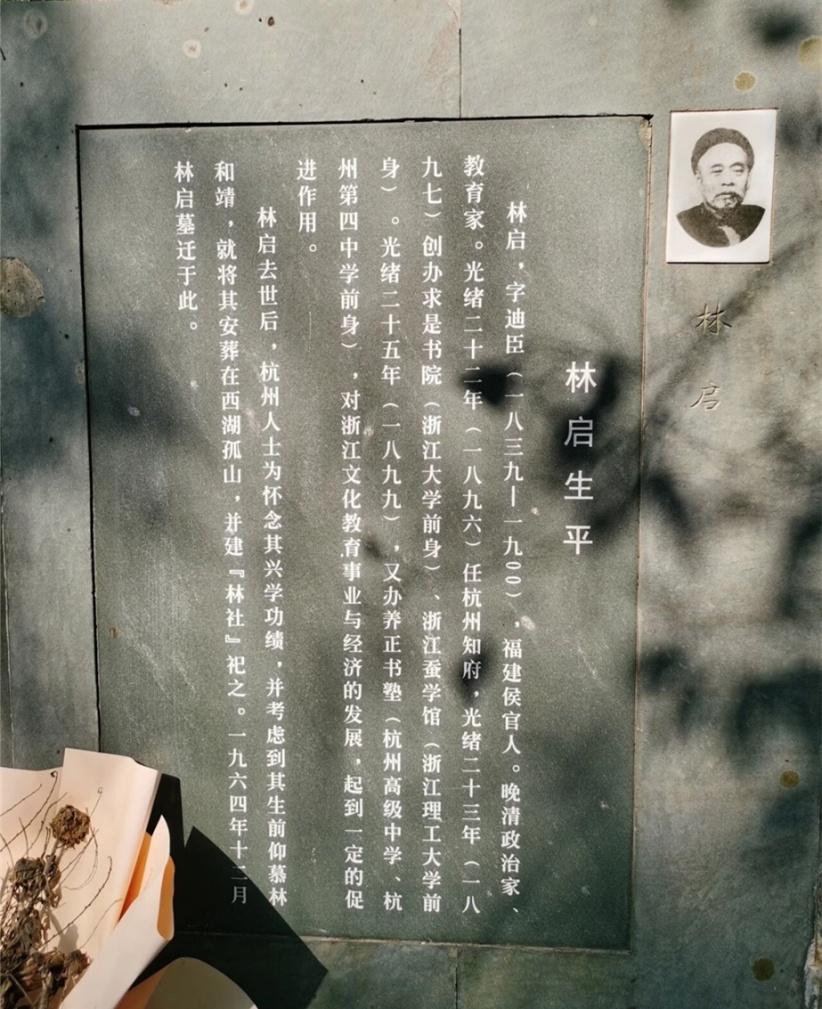 林启
林启生平
林启，字迪臣（一八三九—一九00），福建侯官人。晚清政治家、
教育家。光绪二十二年（一八九六）任杭州知府，光绪二十三年（一八
九七）创办求是书院（浙江大学前身）、浙江蚕学馆（浙江理工大学前
身）。光绪二十五年（一八九九），又办养正书塾（杭州高级中学、杭
州第四中学前身），对浙江文化教育事业与经济的发展，起到一定的促
进作用。
林启去世后，杭州人士为怀念其兴学功绩，并考虑到其生前仰慕林
和靖，就将其安葬在西湖孤山，并建『林社』祀之。一九六四年十二月
林启墓迁于此。